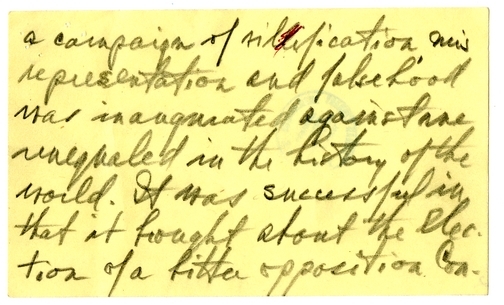 a campaign of vilification mis
representation and falsehood
was inaugurated against me
unequaled in the history of the
world. It was successful in
that it brought about the Elec-
tion of a bitter opposition Con-